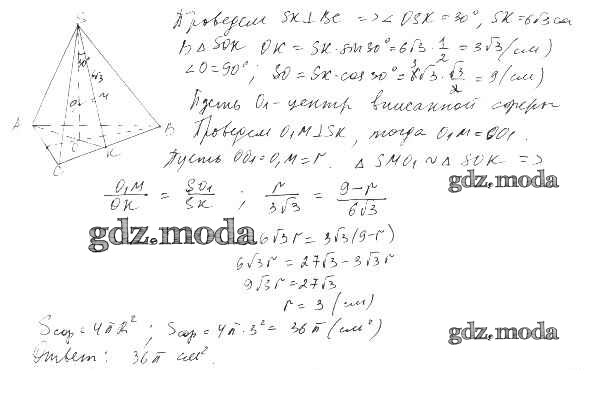 Проведем SK⊥BC => ∠OSK = 30°, SK = 6√3 см
В △SOK OK = SK·sin30° = 6√3 · 1/2 = 3√3 (см)
∠O = 90°; SO = SK·cos30° = 6√3 · √3/2 = 9 (см)
Пусть O₁ - центр вписанной сферы
Проведем O₁M⊥SK, тогда O₁M = OO₁.
Пусть OO₁ = O₁M = r. △SMO₁ ~ △SOK =>
O₁M/OK = SO₁/SK ; r/3√3 = (9-r)/6√3
gdz.moda
gdz.moda
6√3r = 3√3(9-r)
6√3r = 27√3 - 3√3r
9√3r = 27√3
r = 3 (см)
Sсф = 4πR²; Sсф = 4π·3² = 36π (см²)
gdz.moda
Ответ: 36π см².
S
30°
6√3
O₁
M
A
B
O
C
K